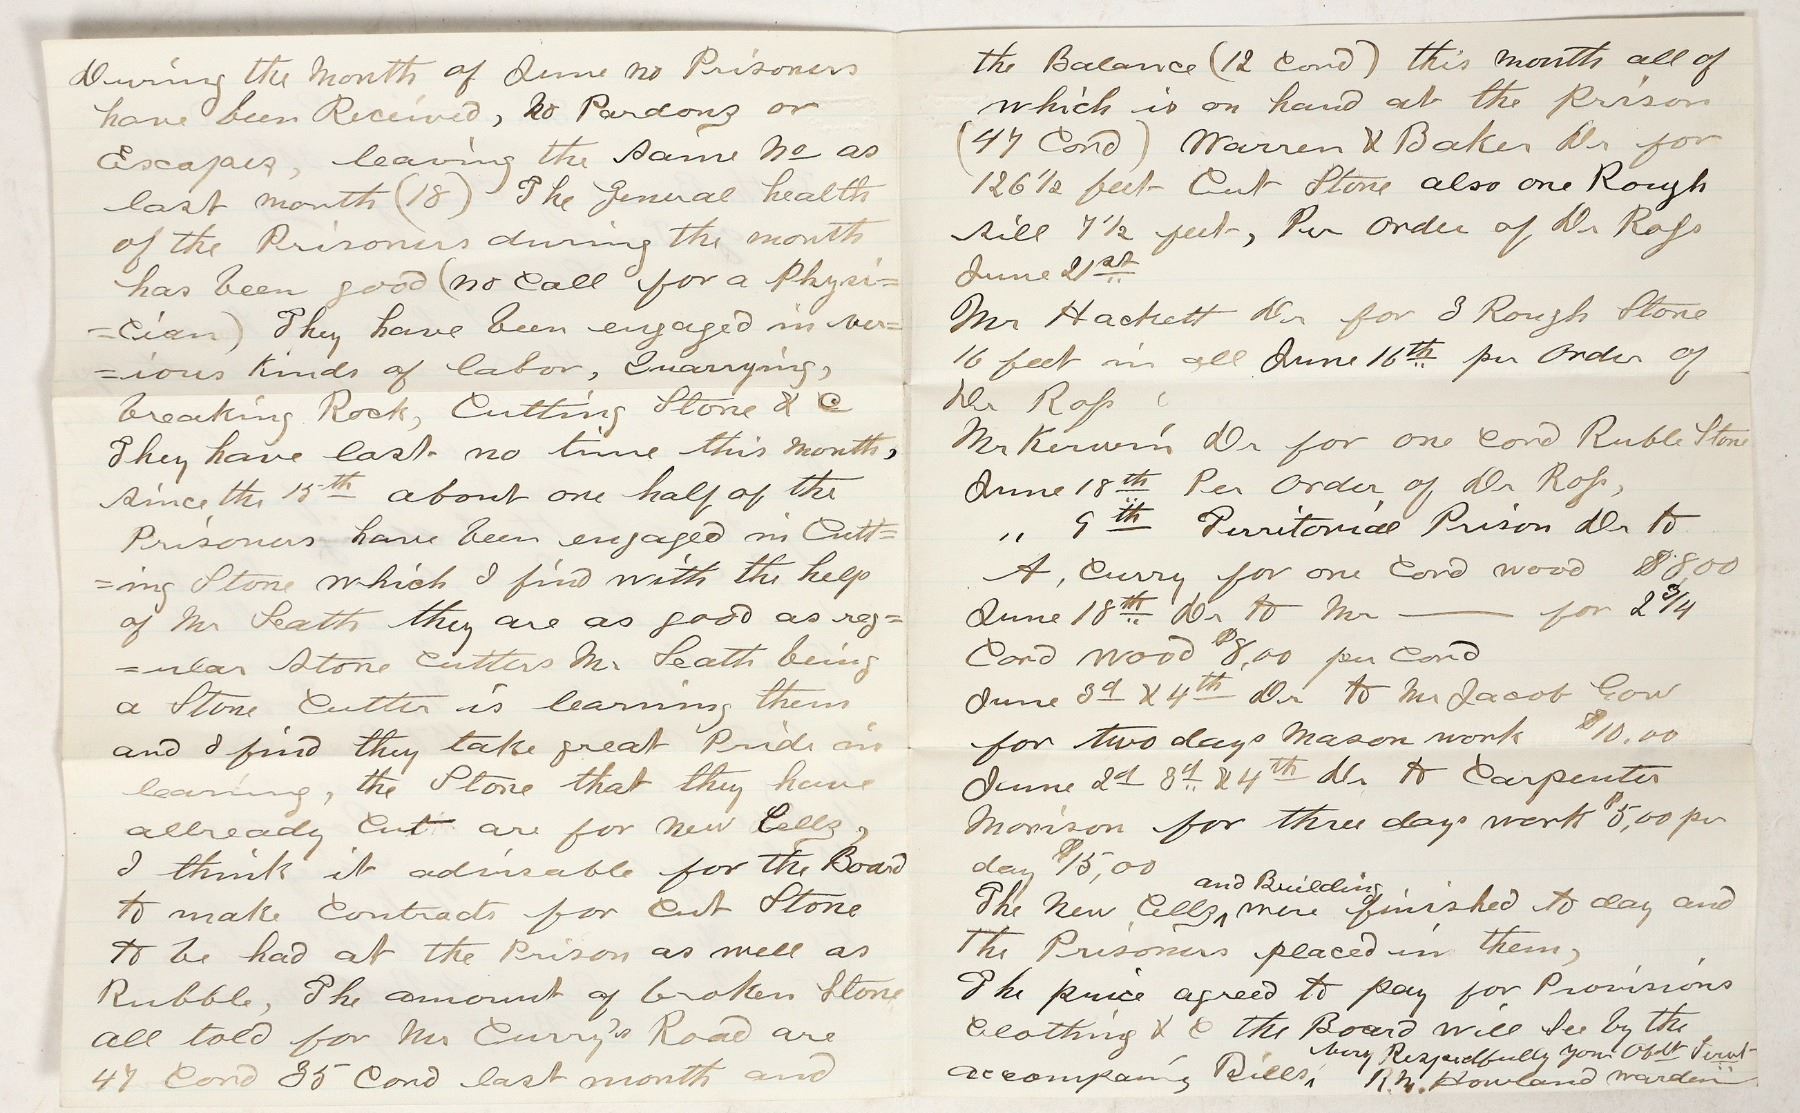 During the Month of June no Prisoners
have been Received, No Pardons or
Escapes, leaving the same No as
last month (18) The General health
of the Prisoners during the month
has been good (no call for a Physi=
=cian) They have been engaged in ver=
=ious kinds of labor, Quarrying,
breaking Rock, Cutting Stone & C
They have lost no time this Month,
since the 15th about one half of the
Prisoners have been engaged in Cutt=
=ing Stone which I find with the help
of Mr Seath they are as good as reg=
=ular Stone Cutters Mr Seath being
a Stone Cutter is learning them
and I find they take great Pride in
learning, the Stone that they have
allready Cut are for New Cells,
I think it advisable for the Board
to make Contracts for Cut Stone
to be had at the Prison as well as
Rubble, The amount of broken Stone
all told for Mr Curry's Road are
47 Cord 35 Cord last month and
the Balance (12 Cord) this month all of
which is on hand at the Prison
(47 Cord) Warren & Baker Dr for
126 1/2 feet Cut Stone also one Rough
sill 7 1/2 feet, Per Order of Dr Ross
June 21st
Mr Hackett Dr for 3 Rough Stone
16 feet in all June 16th per Order of
Dr Ross
Mr Kerwin Dr for one Cord Ruble Stone
June 18th Per Order of Dr Ross,
" 9th Territorial Prison Dr to
A, Curry for one Cord wood $8,00
June 18th Dr to Mr —— for 2 3/4
Cord wood $8,00 per Cord
June 3d & 4th Dr to Mr Jacob Gow
for two days Mason work $10.00
June 2d 3d & 4th Dr to Carpenter
Morison for three days work $5,00 per
day $15,00
The New Cells and Building were finished to day and
the Prisoners placed in them,
The price agreed to pay for Provisions
Clothing & C the Board will see by the
accompaing Bills, Very Respectfully your Obdt Servt
R.M. Howland Warden